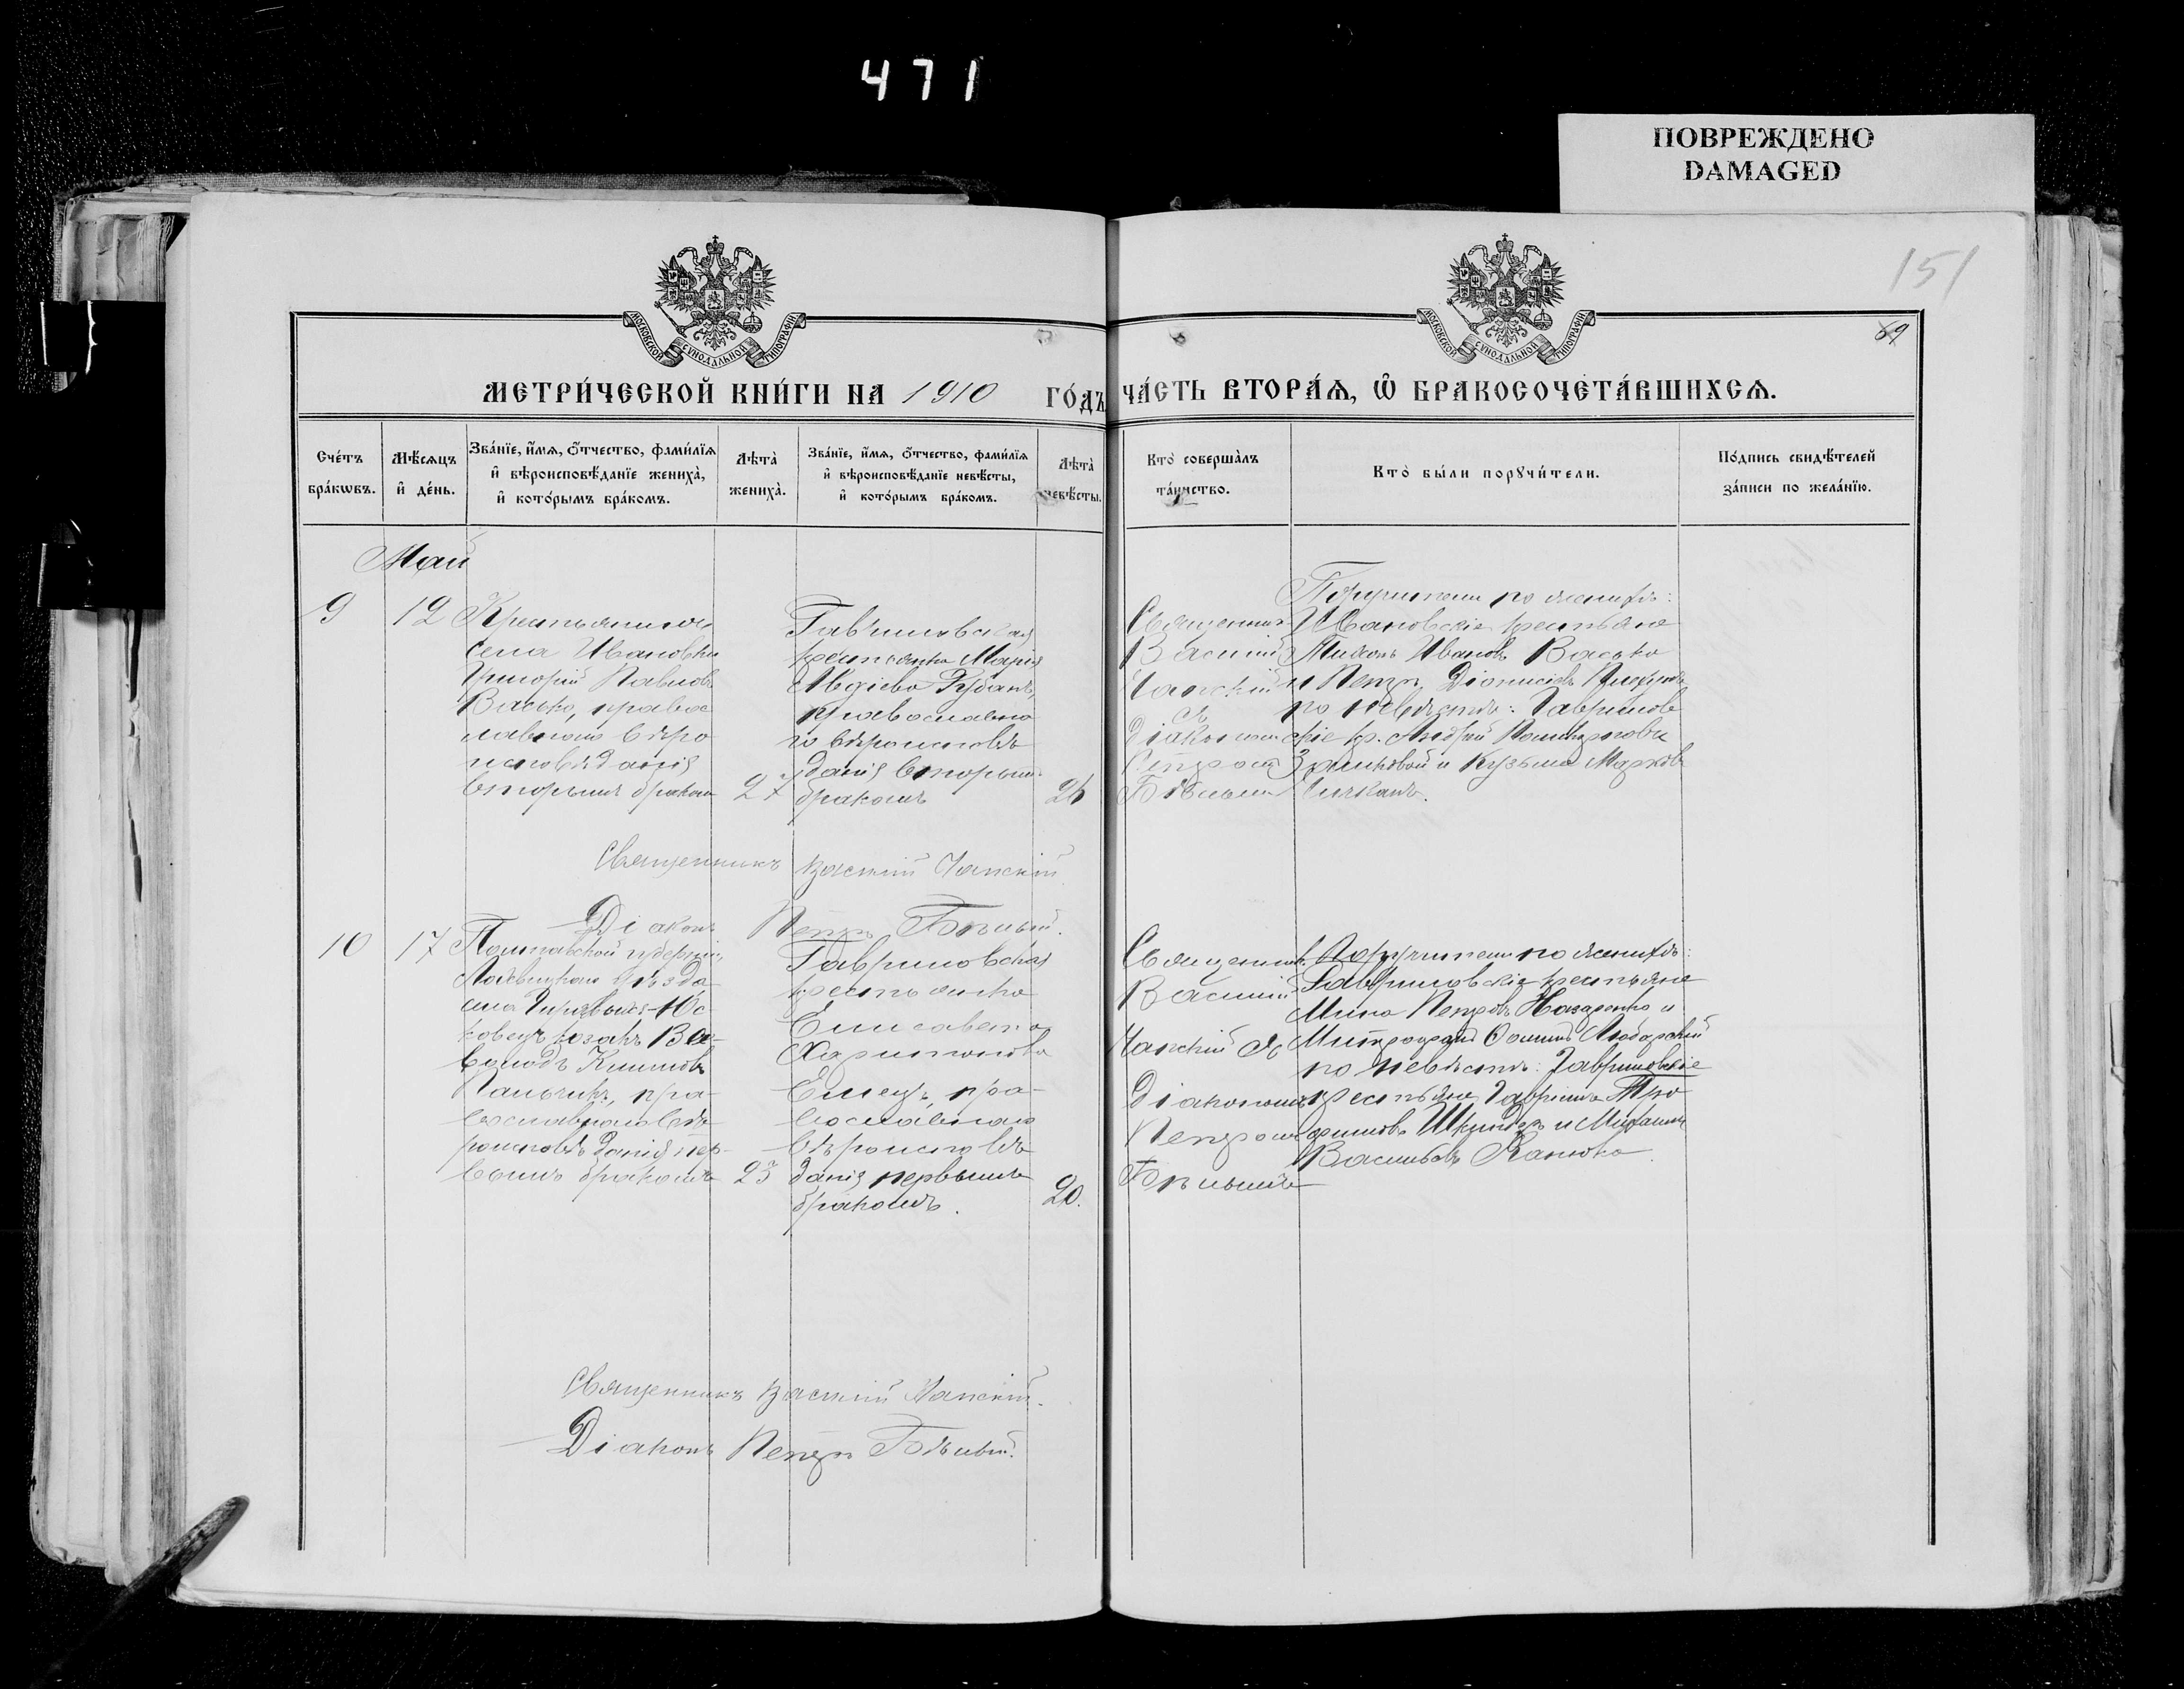 471
ПОВРЕЖДЕНО
DAMAGED
151
69
МОСКОВСКОЙ СѴНОДАЛЬНОЙ ТИПОГРАФІИ
МОСКОВСКОЙ СѴНОДАЛЬНОЙ ТИПОГРАФІИ
МЕТРИ́ЧЕСКОЙ КНИ́ГИ НА 1910 ГО́ДЪ
ЧА́СТЬ ВТОРА́Ѧ, Ѽ БРАКОСОЧЕТА́ВШИХСѦ.
Сче́тъ
бра́кѡвъ.
Мѣ́сѧцъ
и҆ де́нь.
Зва́нїе, и҆́мѧ, ѻ҆́тчество, фами́лїѧ
и҆ вѣроисповѣ́данїе жениха̀,
и҆ кото́рымъ бра́комъ.
Лѣта̀
жениха̀.
Зва́нїе, и҆́мѧ, ѻ҆́тчество, фами́лїѧ
и҆ вѣроисповѣ́данїе невѣ́сты,
и҆ кото́рымъ бра́комъ.
Лѣта̀
невѣ́сты.
Кто̀ соверша́лъ
та́инство.
Кто̀ бы́ли порꙋчи́тели.
По́дпись свидѣ́телей
за́писи по жела́нїю.
Май
9
12
Крестьянинъ
села Ивановки
Григорій Павловъ
Васько, правос
лавнаго вѣро
исповѣданія
вторымъ бракомъ
27
Гавриловская
крестьянка Марія
Авдіева Губанъ,
православна
го вѣроисповѣ
данія вторымъ
бракомъ
26
Священникъ
Василій
Чапскій
съ
Діакономъ
Петромъ
Бѣлымъ
Поручители по женихѣ:
Ивановскіе крестьяне
Тихонъ Ивановъ Васько
и Петръ Діонисіевъ
по невѣстѣ: Гаврилов
скіе кр. Андрей
и Кузьма Марковъ
Священникъ Василій Чапскій
Діаконъ Петръ Бѣлый.
10
17
Полтавской губерніи,
Лохвицкаго уѣзда
села Юс
ковецъ козакъ Все
володъ Климовъ
Пальчикъ, пра
вославнаго вѣ
роисповѣданія пер
вымъ бракомъ
23
Гавриловская
крестьянка
Елисавета
Харитонова
Емецъ, пра
вославнаго
вѣроисповѣ
данія первымъ
бракомъ.
20.
Священникъ
Василій
Чапскій съ
Діакономъ
Петромъ
Бѣлымъ
Поручители по женихѣ:
Гавриловскіе крестьяне
Мина Петровъ Назаренко и
Митрофанъ Ѳоминъ Люборскій
по невѣстѣ: Гавриловскіе
крестьяне Гавріилъ Тро
фимовъ и Михаилъ
Васильевъ Канюка
Священникъ Василій Чапскій.
Діаконъ Петръ Бѣлый.